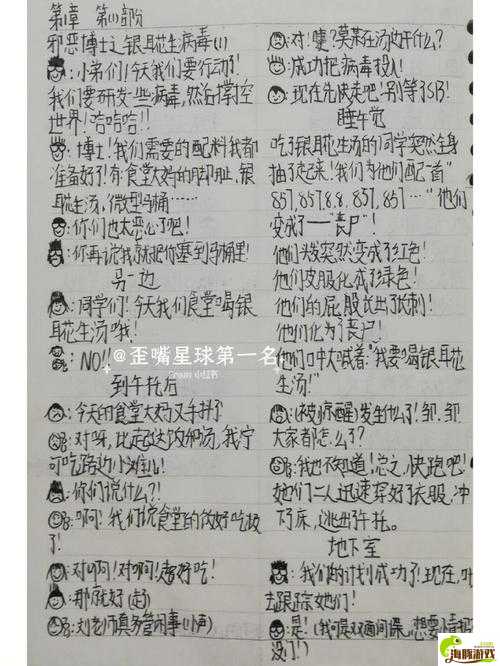 第1章 第(1)部份
邪恶博士之银耳花生病毒(1)
:小弟们!今天我们要行动了!
我们要研发一些病毒,然后掌控
世界!哈哈哈!!
:博士!我们需要的配料我都
准备好了!有食堂大妈的脚趾,银
耳花生汤,微型马桶……
:你们也太恶心了吧!
:你再说我就把你塞到马桶里!
另一边
:同学们!今天我们食堂喝银
耳花生汤哦!
:NO!!
到午托后
:今天的食堂大妈又手抖了
:对呀,比起这饭和汤,我宁
可吃路边小摊儿!
:你们说什么?!
:啊!我们说食堂的饭好吃极
了!
:对啊!对啊!超好吃!
:那就好(走)
:刘老师真多管闲事(小声)
:对!嗖?莫某在汤边干什么?
:成功把病毒投入!
:现在先快走吧!别等了SB!
睡午觉
吃了银耳花生汤的同学突然全身
抽了起来!我们为他们配一首"
857,857 8 8,857,857…"他们
变成了——"丧尸"!
他们头发突然变成了红色!
他们皮肤化成了绿色!
他们的屁股长出了抵刺!
他们化为了丧尸!
他们口中大喊着:"我要喝银耳花
生汤!"
:(被惊醒)发生什么了!邹、邹、
大家都怎么了?
:我也不知道!总之,快跑吧!
她们二人迅速穿好了衣服,冲
下床,逃出午托。
地下室
:我们的计划成功了!现在,
去跟踪她们!
:是!(我是双面间谍,想要
没门!)
@歪嘴星球第一名
小红书
海豚游戏